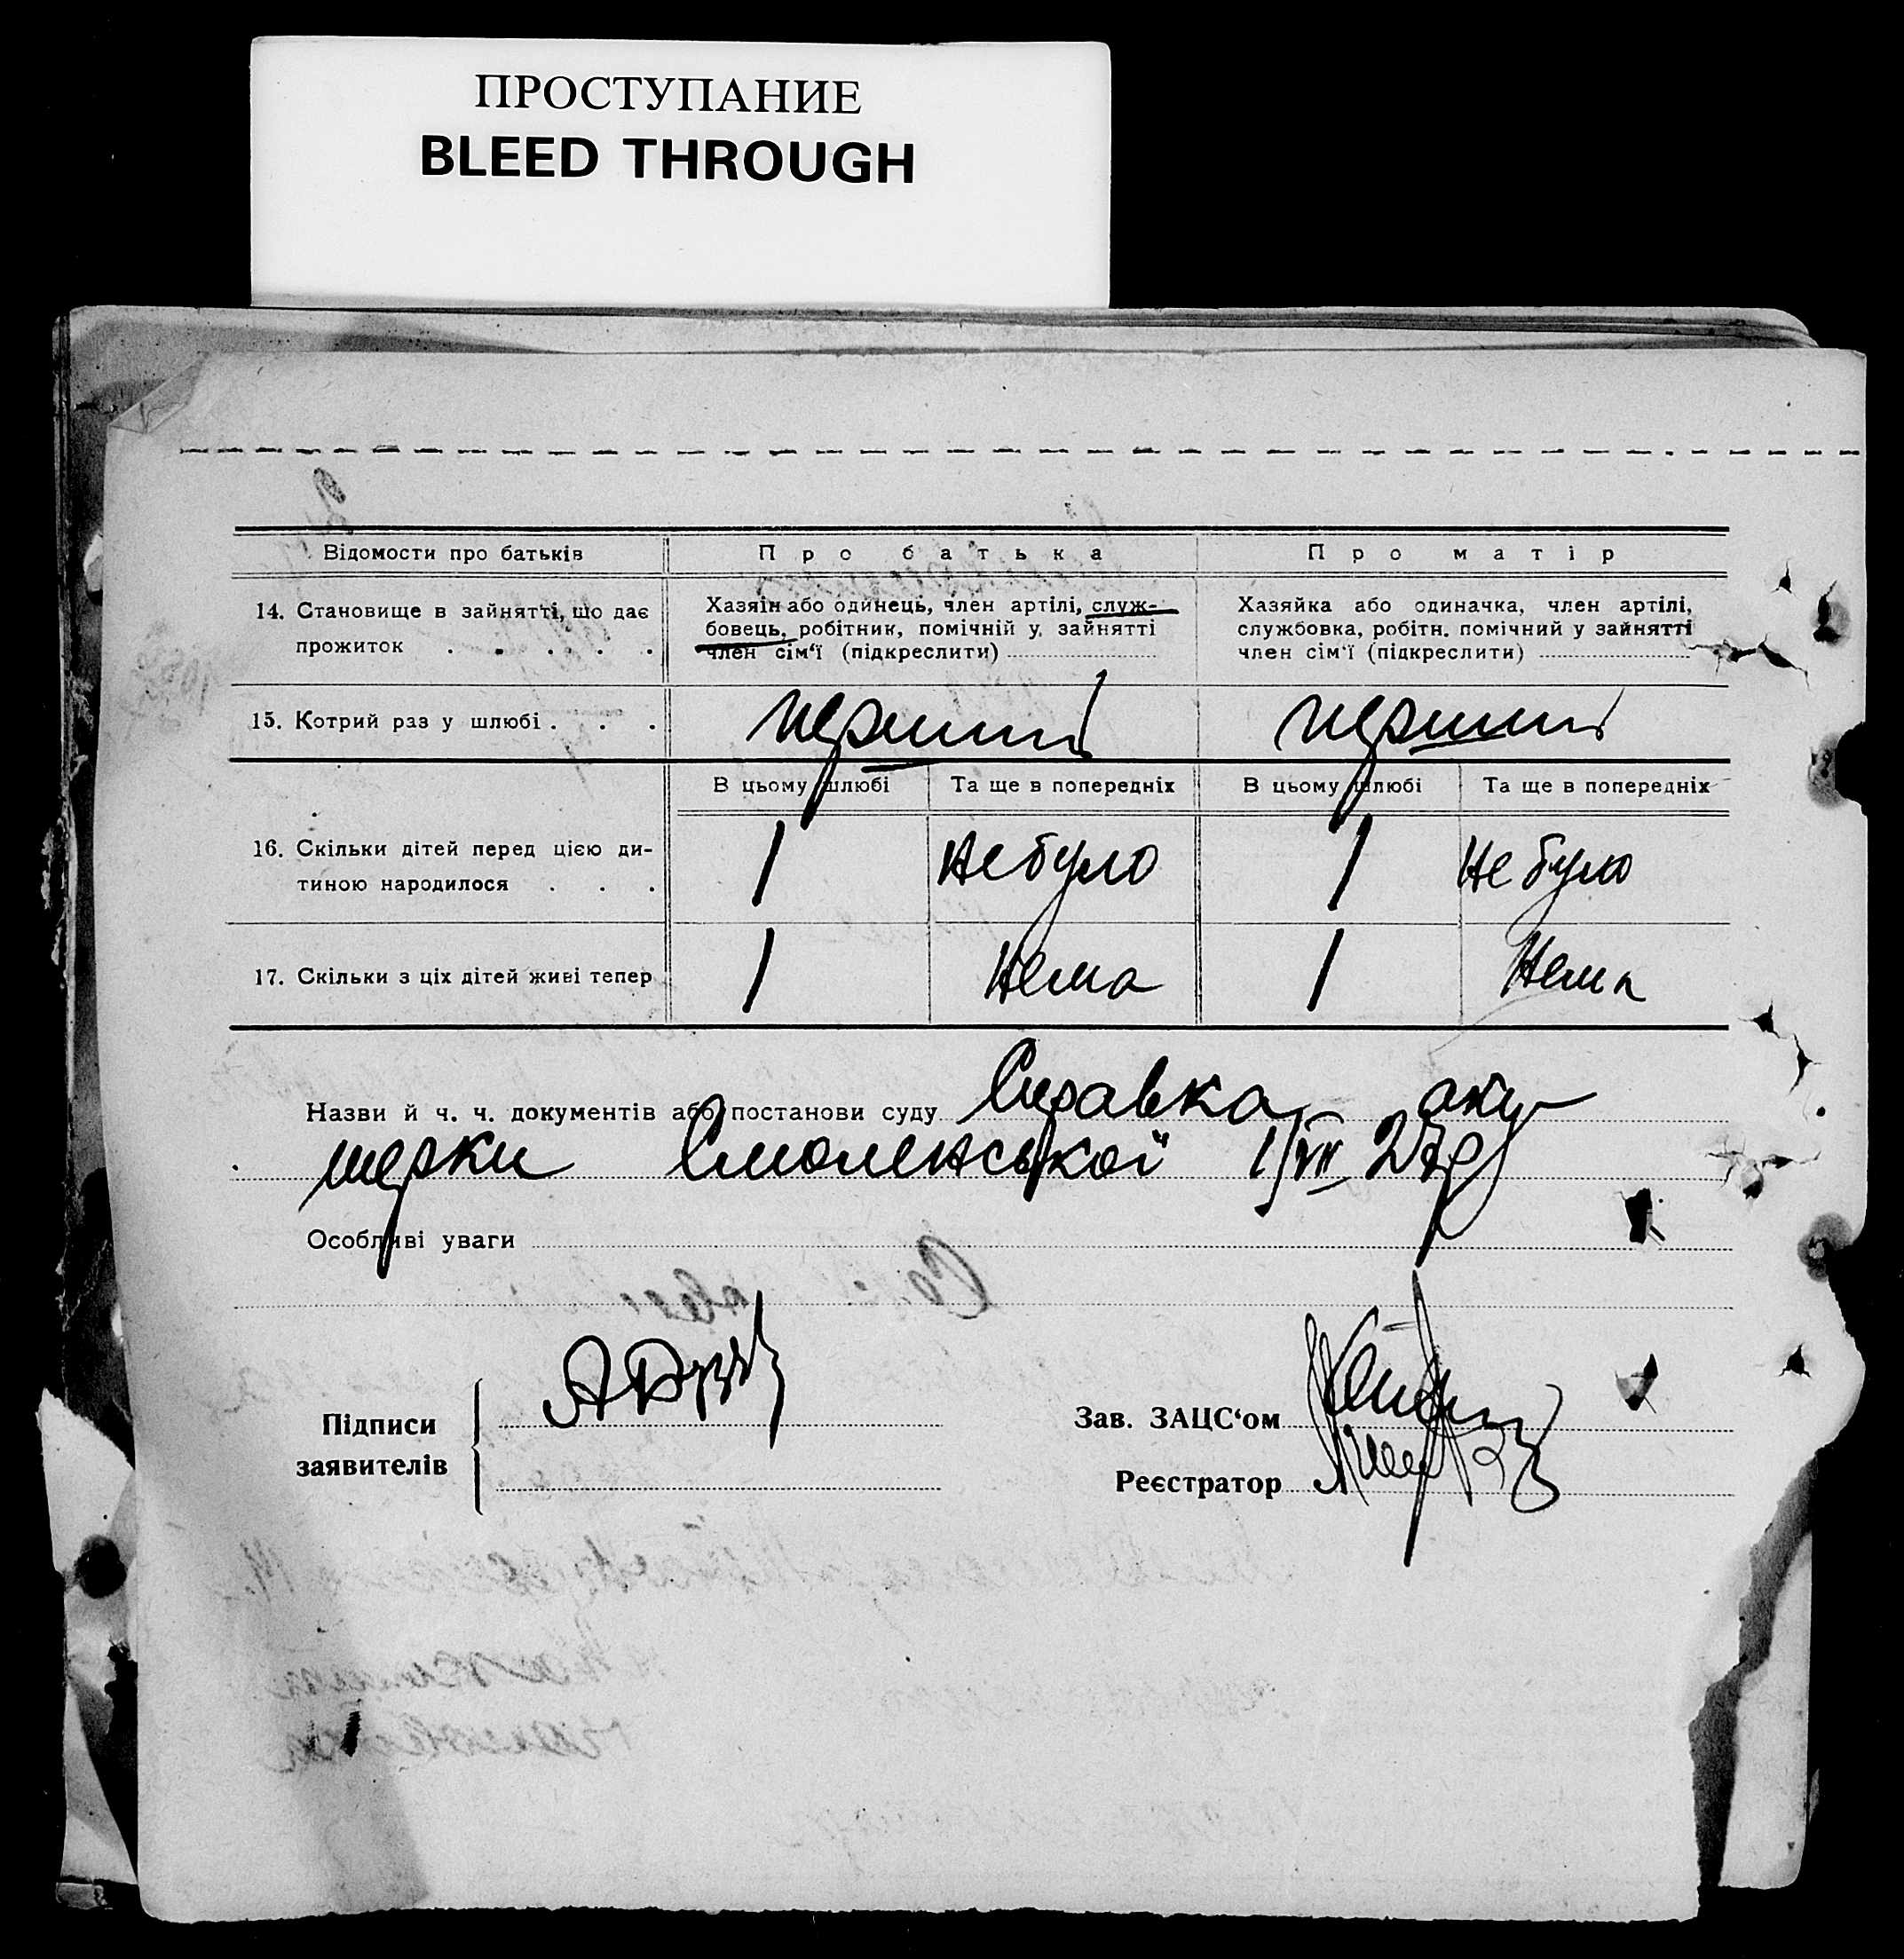 ПРОСТУПАНИЕ
BLEED THROUGH
Відомости про батьків
Про батька
Про матір
14. Становище в зайнятті, що дає
прожиток . . . . .
Хазяїн або одинець, член артілі, служ-
бовець, робітник, помічній у зайнятті
член сім‘ї (підкреслити)
Хазяйка або одиначка, член артілі,
службовка, робітн. помічний у зайнятті
член сім‘ї (підкреслити)
15. Котрий раз у шлюбі . . .
перший
перший
В цьому шлюбі
Та ще в попередніх
В цьому шлюбі
Та ще в попередніх
16. Скільки дітей перед цією ди-
тиною народилося . . .
1
не було
1
не було
17. Скільки з ціх дітей живі тепер
1
Нема
1
Нема
Назви й ч. ч. документів або постанови суду Справка аку-
шерки Смоленської 1/VII 27р
Особливі уваги
Підписи
заявителів
Зав. ЗАЦС‘ом
Реєстратор